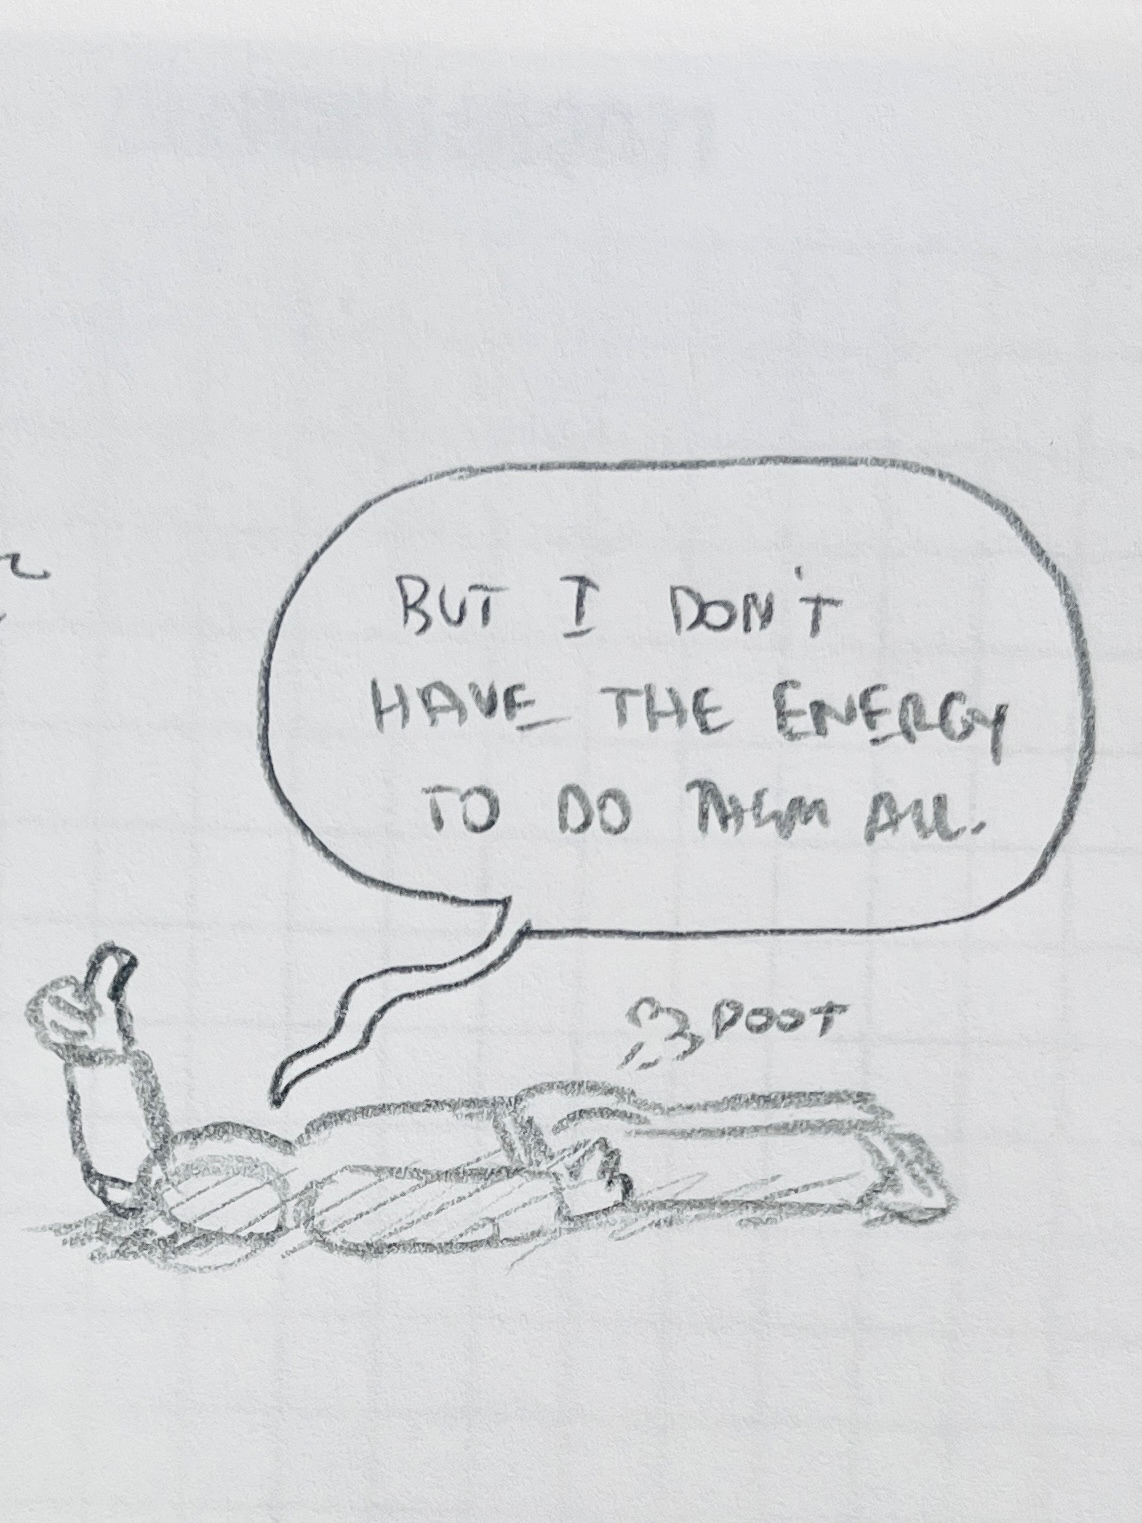 BUT I DON'T
HAVE THE ENERGY
TO DO THEM ALL.
POOT